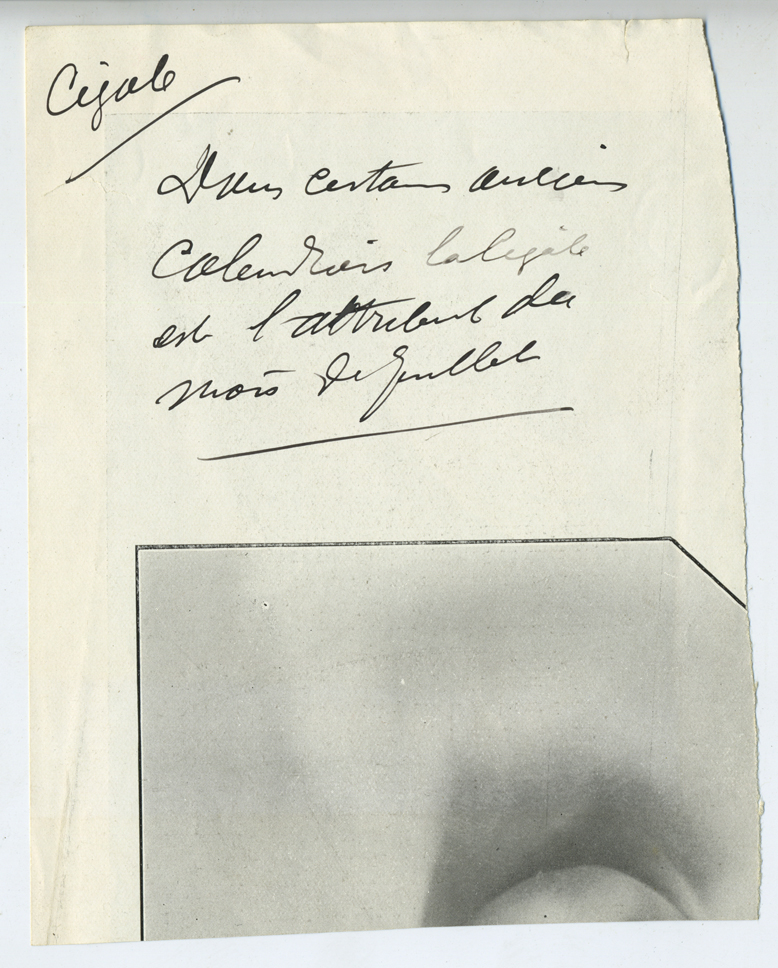 Cigale
Dans certains anciens
Calendriers la Cigale
est l'attribut du
mois de Juillet